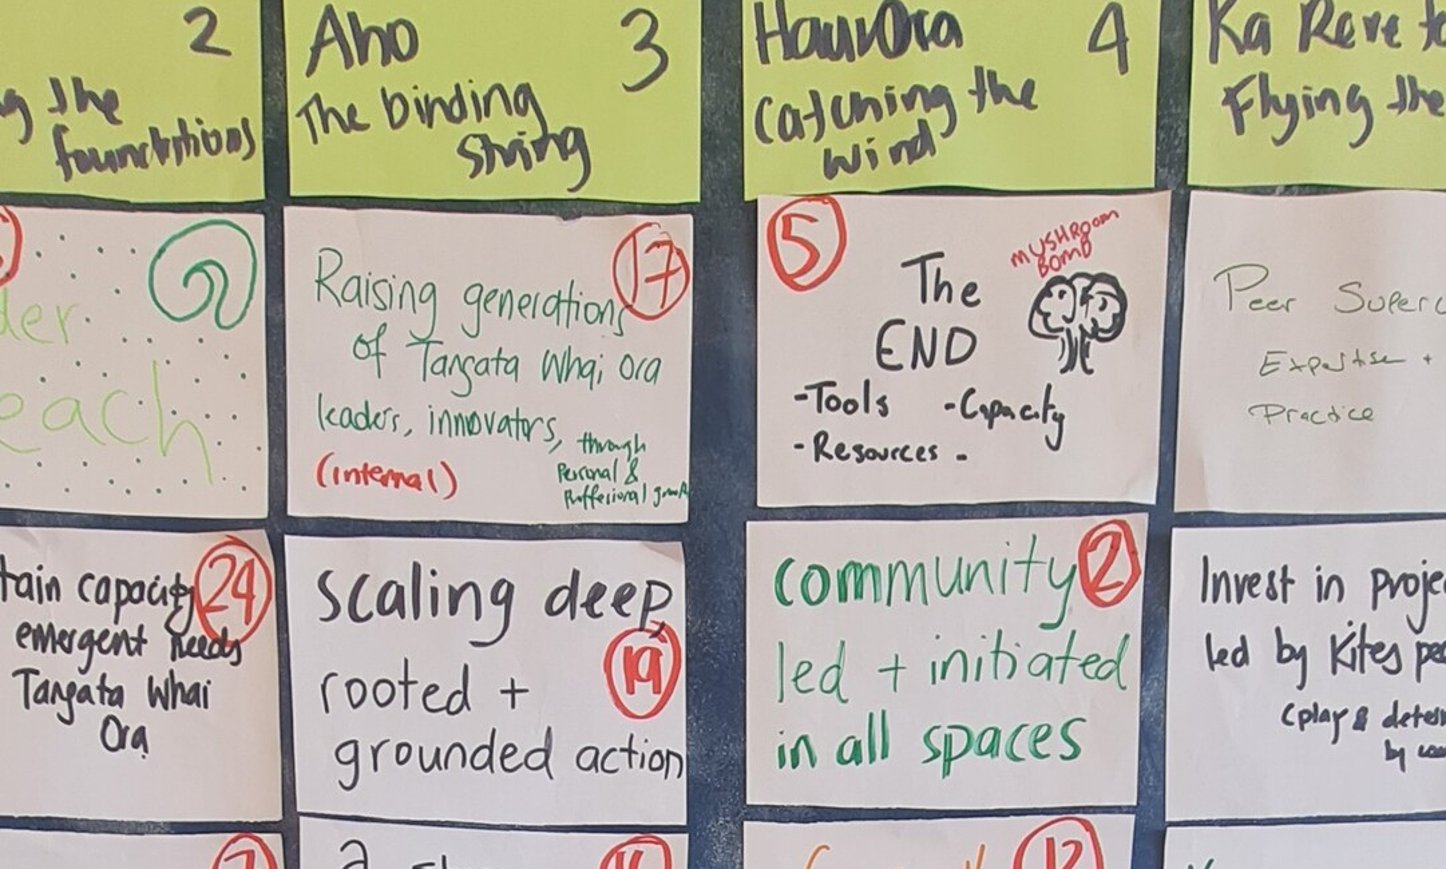 2
the
foundations
Aho 3
The binding
string
HauoOra 4
Catching the
wind
Ka Rere
Flying the
17
Raising generations
of Tangata Whai Ora
leaders, innovators, through
Personal &
Proffesional growth
(internal)
5
MUSHROOM
BOMB
The
END
-Tools -Capacity
-Resources -
Peer
Expertise +
Practice
24
capacity
emergent needs
Tangata Whai
Ora
scaling deep,
rooted + 19
grounded action
community 2
led + initiated
in all spaces
Invest in
led by Kites
(play &
by
7
12